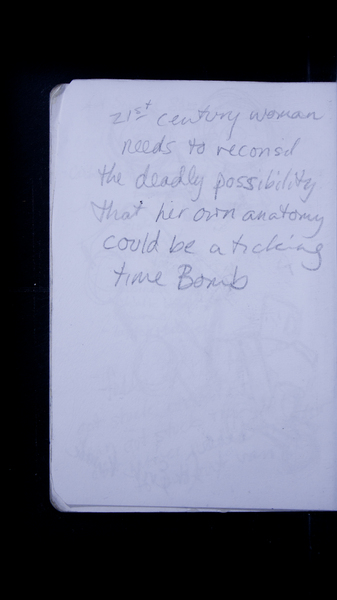 21st century woman
needs to reconsil
the deadly possibility
that her own anatomy
could be a ticking
time Bomb